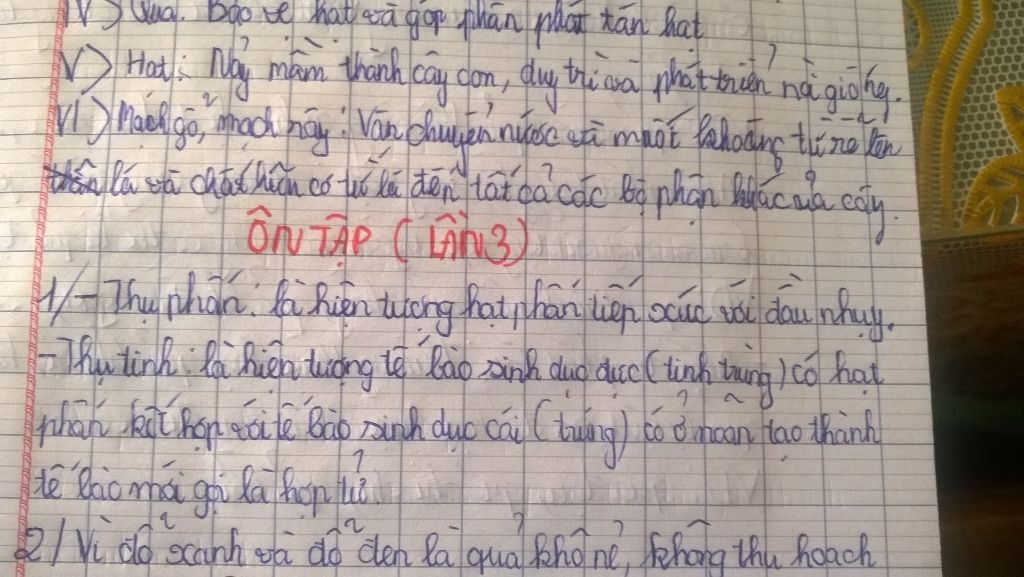 IV) Quả: Bảo vệ hạt và góp phần phát tán hạt
V) Hạt: Nảy mầm thành cây con, duy trì và phát triển nòi giống.
VI) Mạch gỗ, mạch rây: Vận chuyển nước và muối khoáng từ rễ lên
thân lá và chất hữu cơ từ lá đến tất cả các bộ phận khác của cây.
ÔN TẬP (LẦN 3)
1/ - Thụ phấn: là hiện tượng hạt phấn tiếp xúc với đầu nhụy.
- Thụ tinh: là hiện tượng tế bào sinh dục đực (tinh trùng) có hạt
phấn kết hợp với tế bào sinh dục cái (trứng) có ở noãn tạo thành
tế bào mới gọi là hợp tử.
2/ Vì đỗ xanh và đỗ đen là quả khô nẻ, không thu hoạch